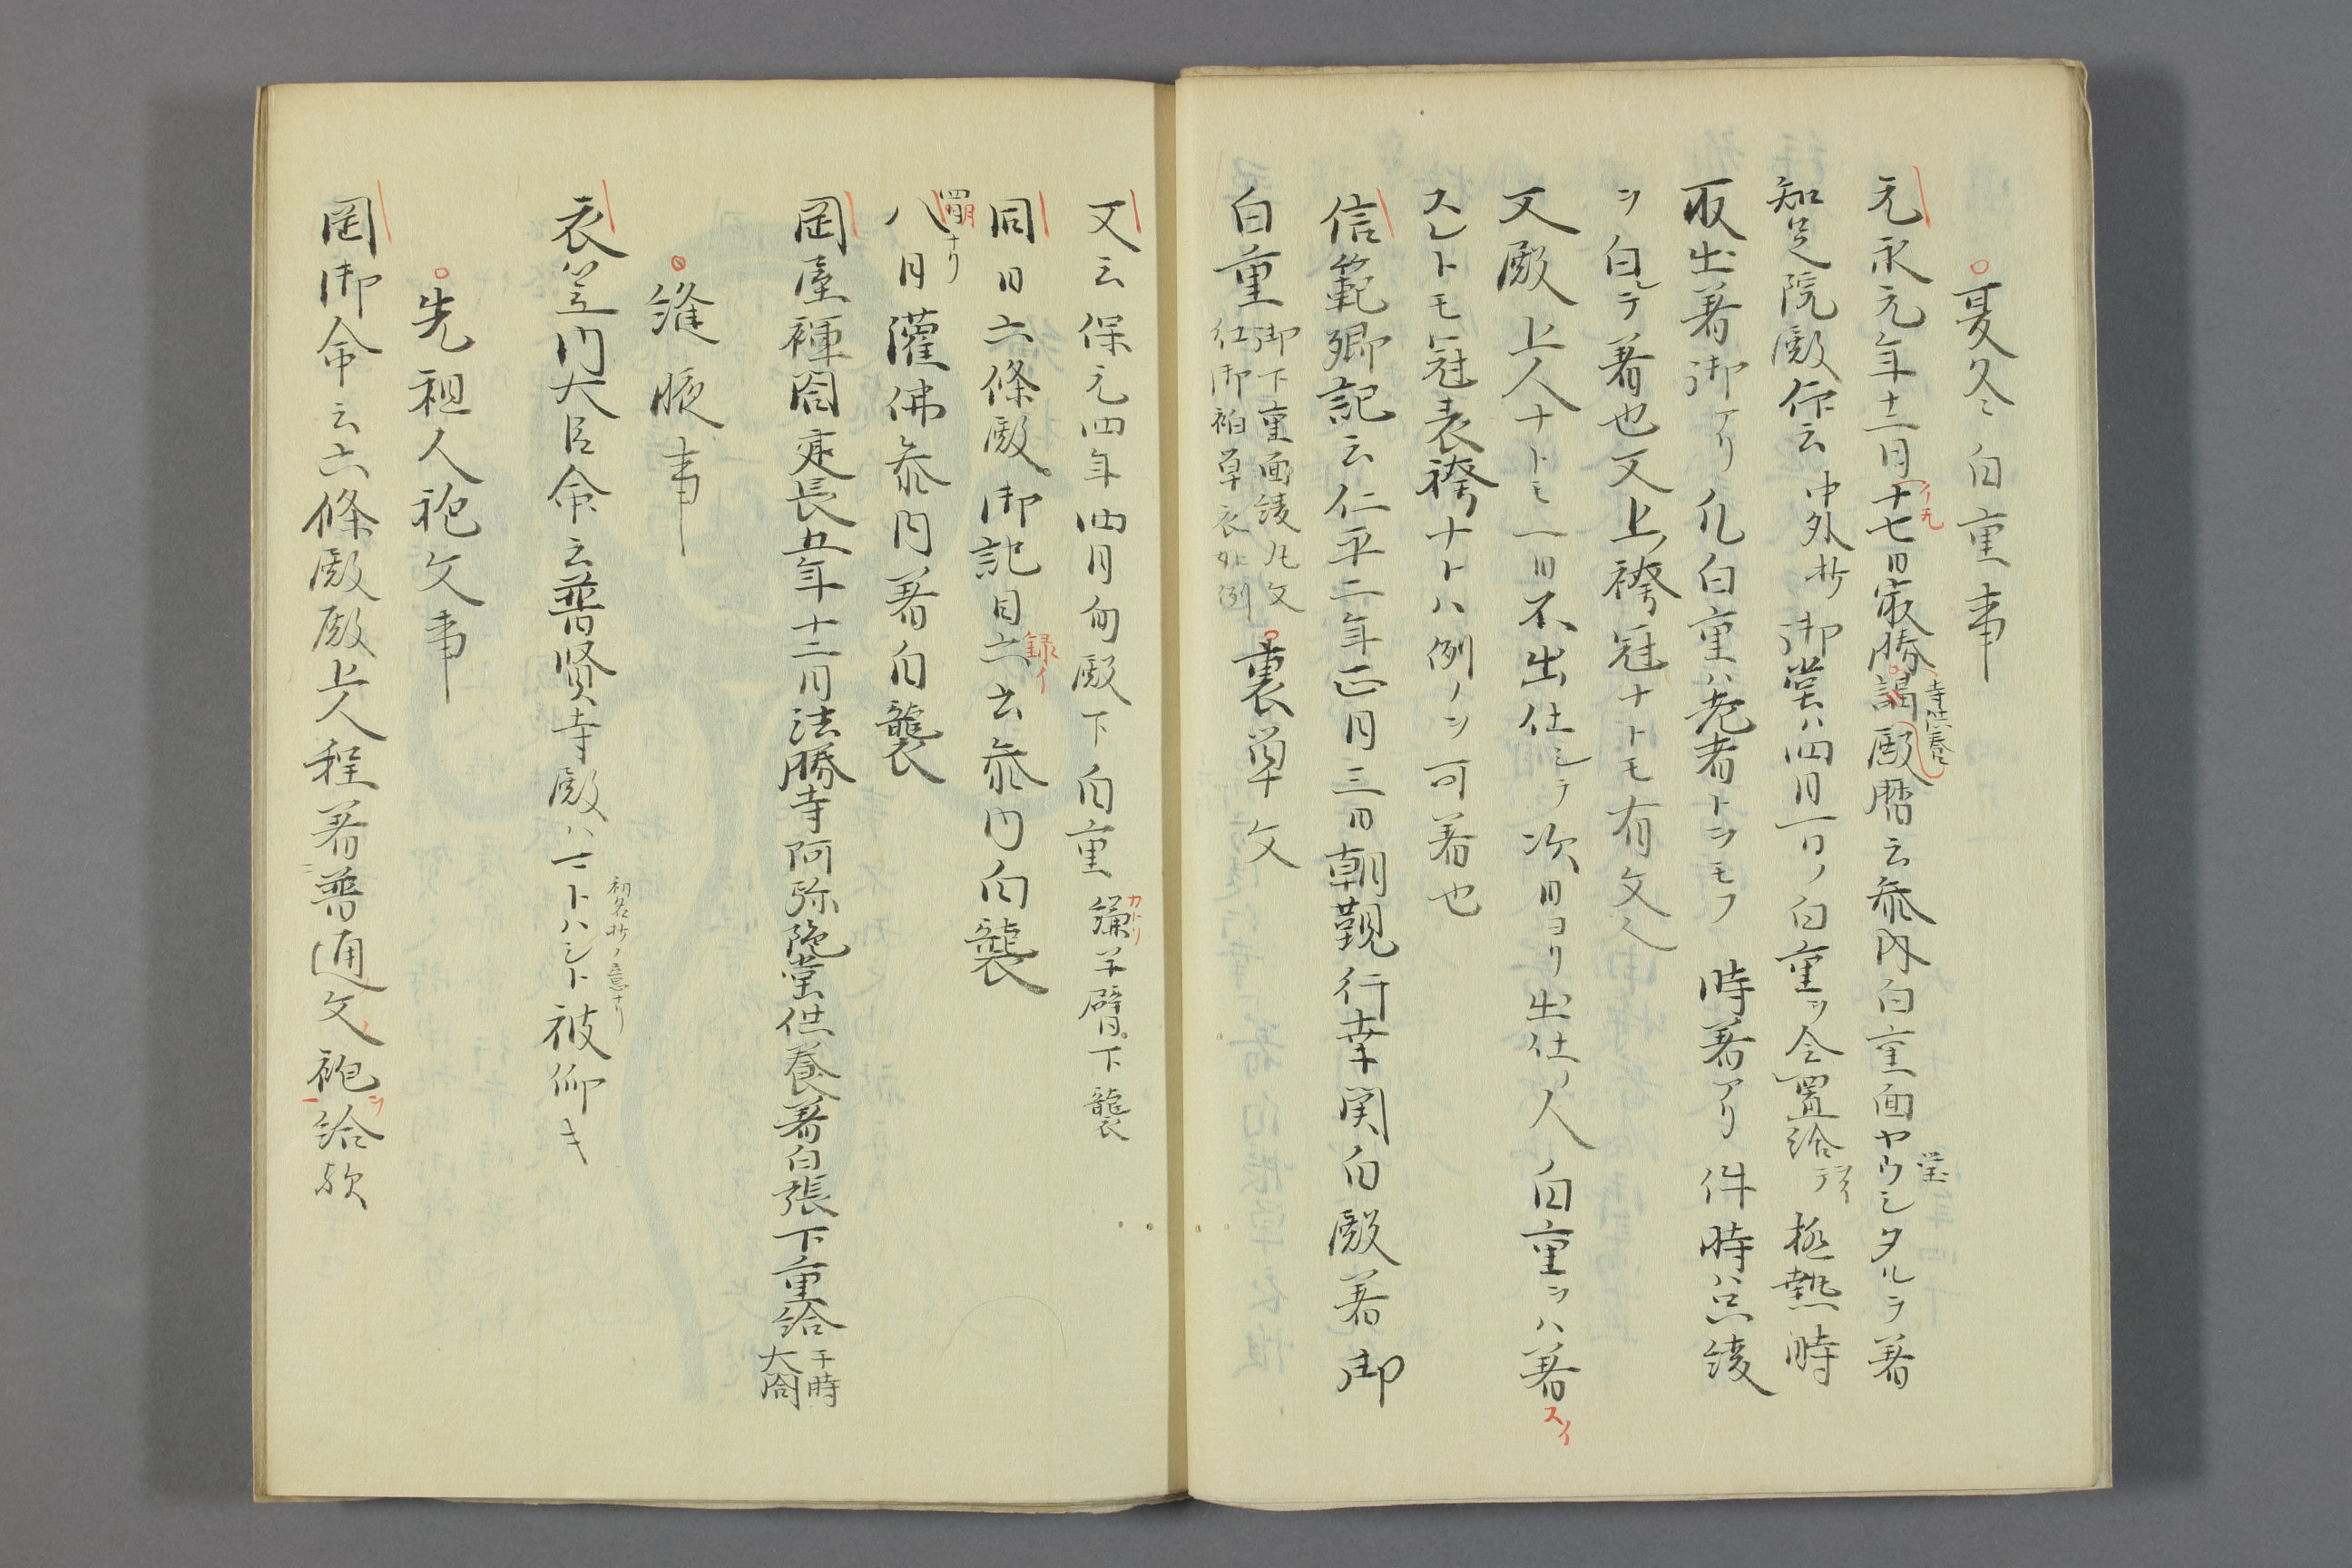 夏冬白重事
元永元年十二月十七日最勝講殿暦云参内白重面ヤウシタルヲ著
イ无
寺供養
瑩
知足院殿仰云中外抄御堂ハ四月一日ノ白重ヲ令置給テ極熱時
取出著御アリ凡白重ハ老者トヲモフ時著アリ件時ハ只綾
ヲ白シテ著也又上袴冠ナトモ有文之
又殿上人ナトモ一日不出仕シテ次日ヨリ出仕ノ人白重ヲハ著
スイ
スレトモ冠表袴ナトハ例ノヲ可著也
信範卿記云仁平二年正月三日朝覲行幸関白殿著御
白重御下重面綾凡文
紅御袙単衣如例裏単文
又云保元四年四月旬殿下白重縑半臂下襲
カトリ
同日六條殿御記目六云参内白襲
録イ
八日灌佛参内著白襲
四月ナリ
岡屋禅閤建長五年十二月法勝寺阿弥陀堂供養著白張下重給于時
大閤
縫腋事
衣笠内大臣命云普賢寺殿ハマトハシト被仰キ
初名抄ノ意ナリ
先祖人袍文事
岡御命云六條殿殿上人程著普通文袍給歟
ノ
ヲ